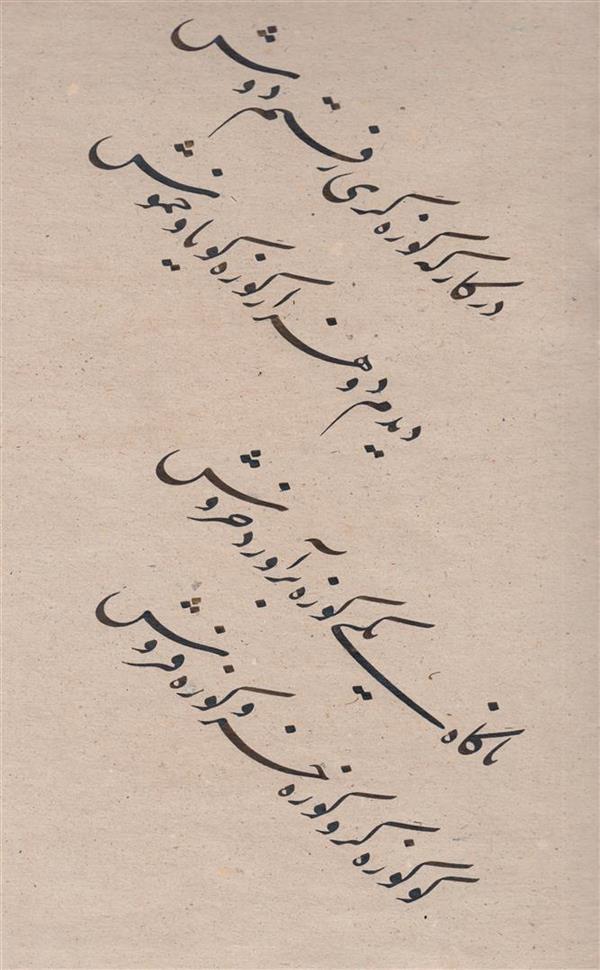 در کارگه کوزه گری رفتم دوش
دیدم دو هزار کوزه گویا و خموش
ناگاه یکی کوزه برآورد خروش
کو کوزه گر و کوزه خر و کوزه فروش